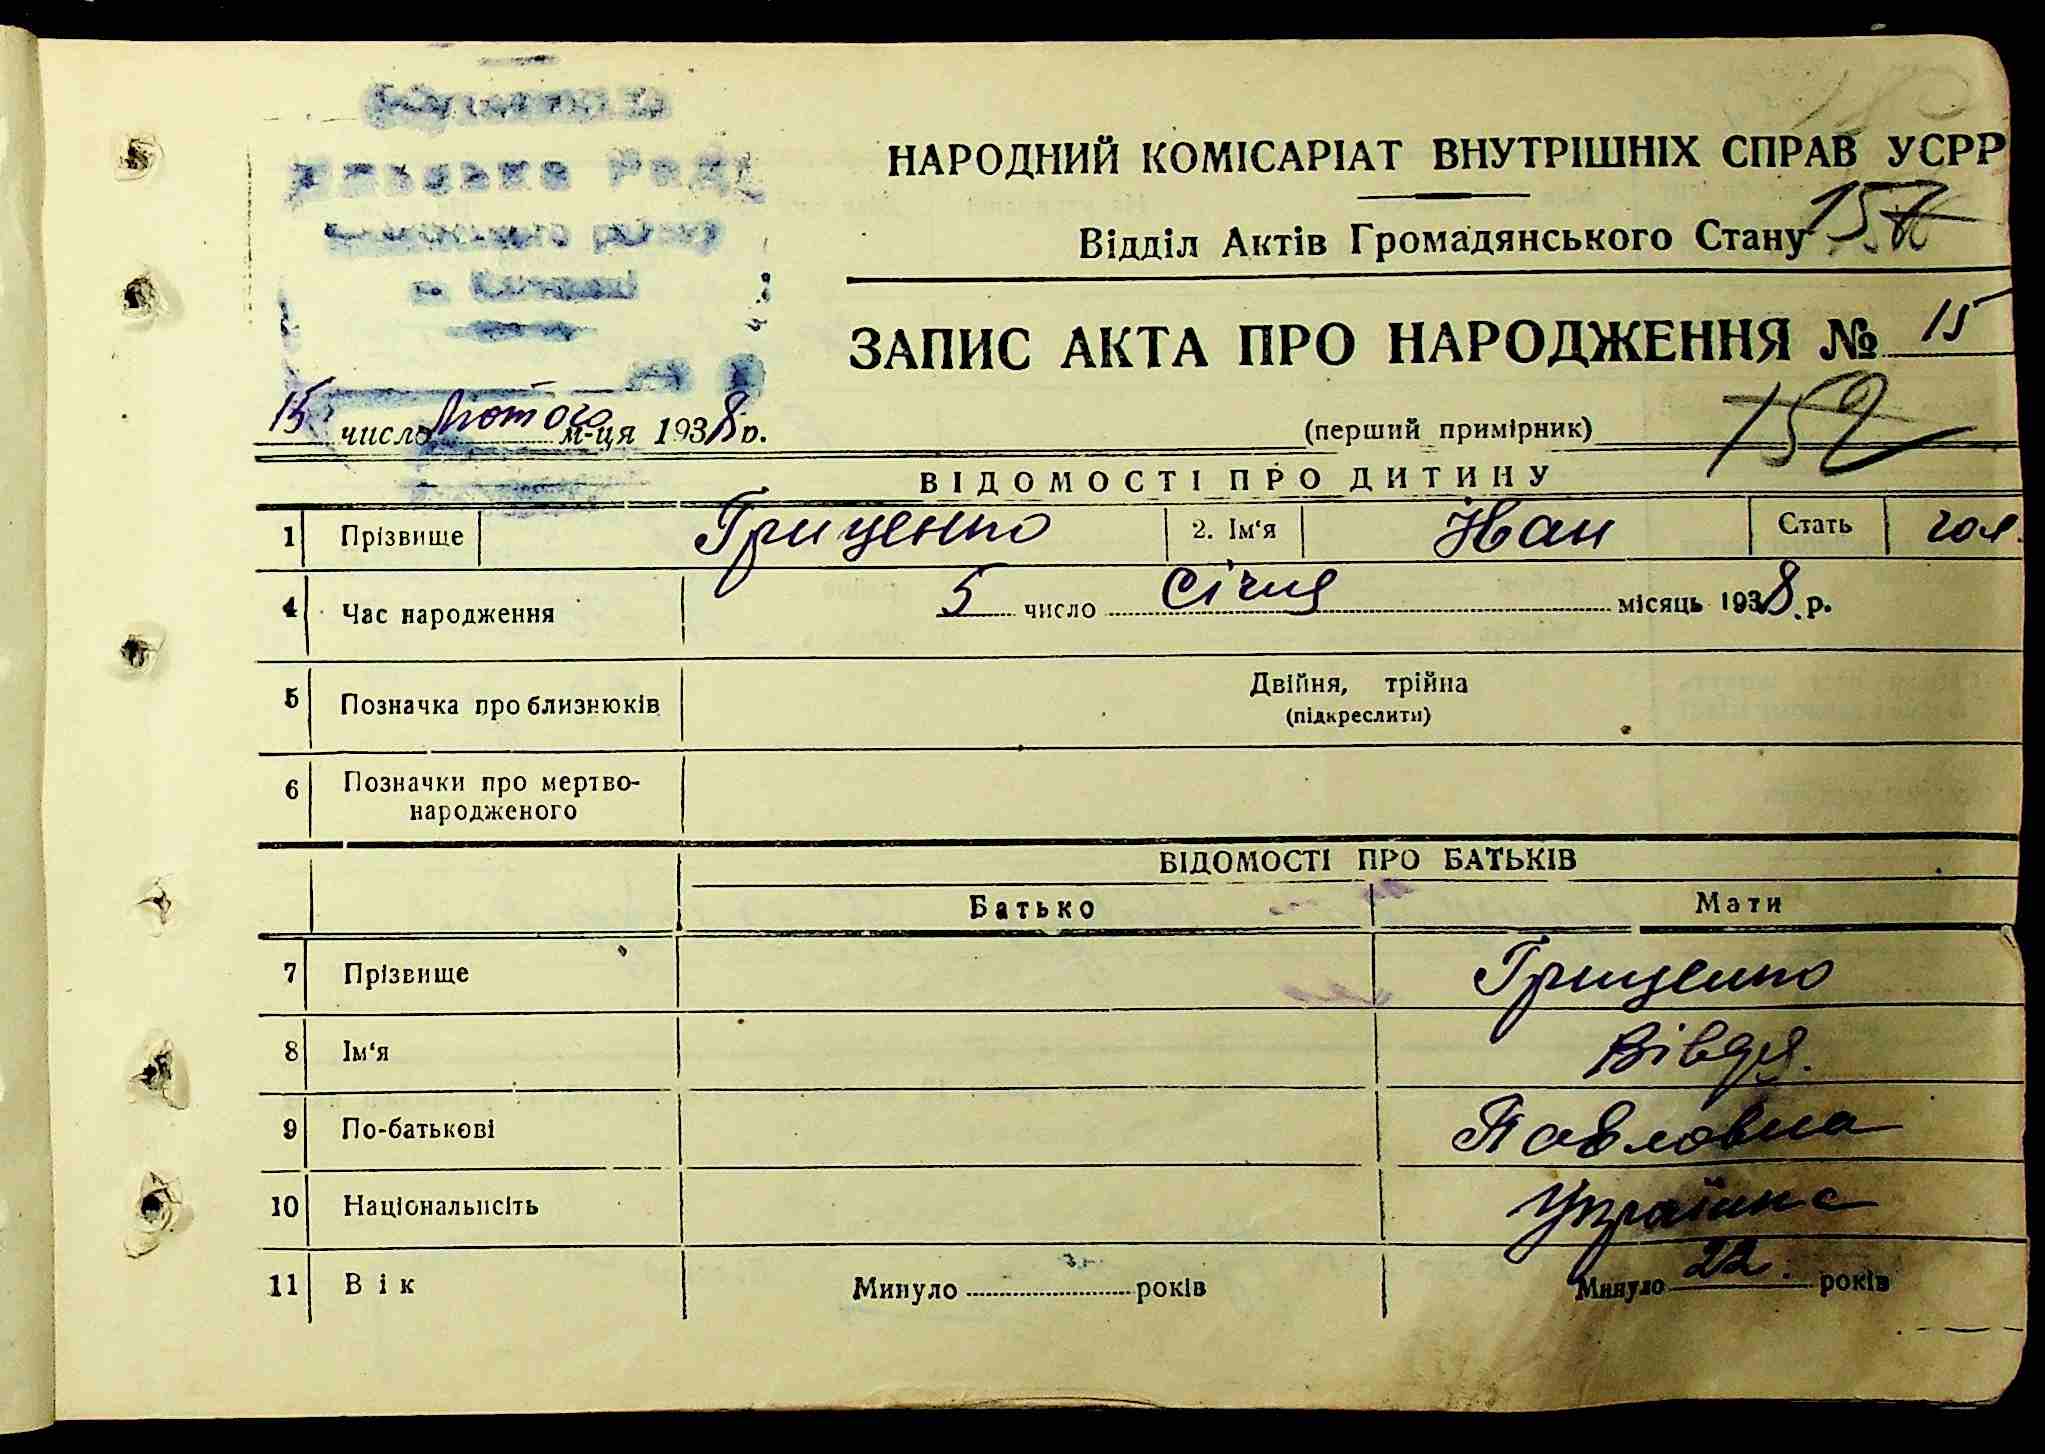 Рад
району
НАРОДНИЙ КОМІСАРІАТ ВНУТРІШНІХ СПРАВ УСРР
Відділ Актів Громадянського Стану
ЗАПИС АКТА ПРО НАРОДЖЕННЯ № 15
15 число Лютого м-ця 1938 р.
(перший примірник) 152
ВІДОМОСТІ ПРО ДИТИНУ
1 Прізвище Гриценко 2. Ім‘я Іван Стать чол.
4 Час народження 5 число Січня місяць 1938 р.
5 Позначка про близнюків Двійня, трійна
(підкреслити)
6 Позначки про мертво-
народженого
ВІДОМОСТІ ПРО БАТЬКІВ
Батько Мати
7 Прізвище Гриценко
8 Ім‘я Вівдя.
9 По-батькові Павловна
10 Національність Українка
11 Вік Минуло років Минуло 22. років